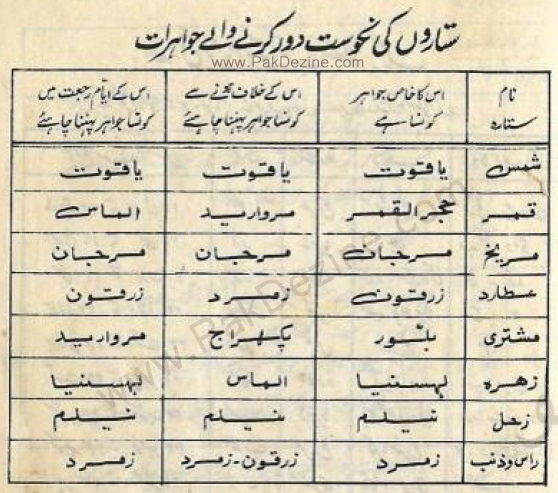 ستاروں کی نحوست دور کرنے والے جواہرات
www.PakDezine.com
نام ستارہ
اس کا خاص جواہر کونسا ہے
اس کے خلاف بچنے سے کونسا جواہر پہننا چاہئے
اس کے ایام رجعت میں کونسا جواہر پہننا چاہئے
شمس یاقوت یاقوت یاقوت
قمر حجر القمر مروارید الماس
مریخ مرجان مرجان مرجان
عطارد زرقون زمرد زرقون
مشتری بلور پکھراج مروارید
زھرہ لہسنیا الماس لہسنیا
زحل نیلم نیلم نیلم
راس و ذنب زمرد زرقون-زمرد زمرد
www.PakDezine.com